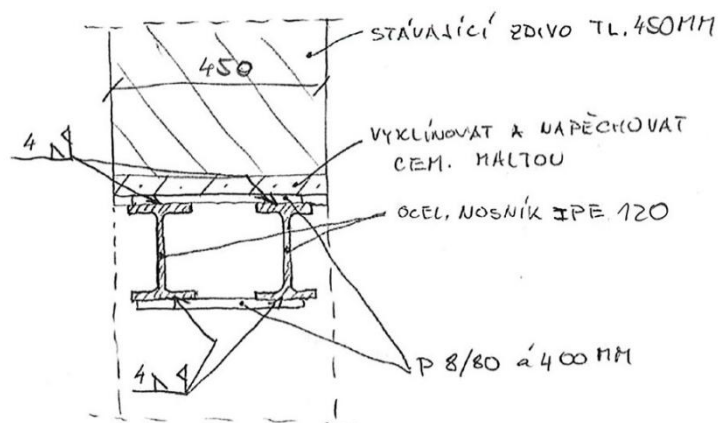 STÁVAJÍCÍ ZDIVO TL. 450MM
450
4
VYKLÍNOVAT A NAPĚCHOVAT
CEM. MALTOU
OCEL. NOSNÍK IPE 120
4
P 8/80 á 400 MM